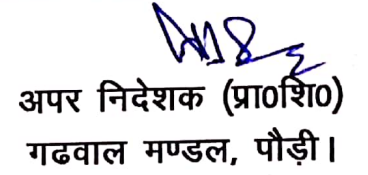 अपर निदेशक (प्रा०शि०)
गढवाल मण्डल, पौड़ी।